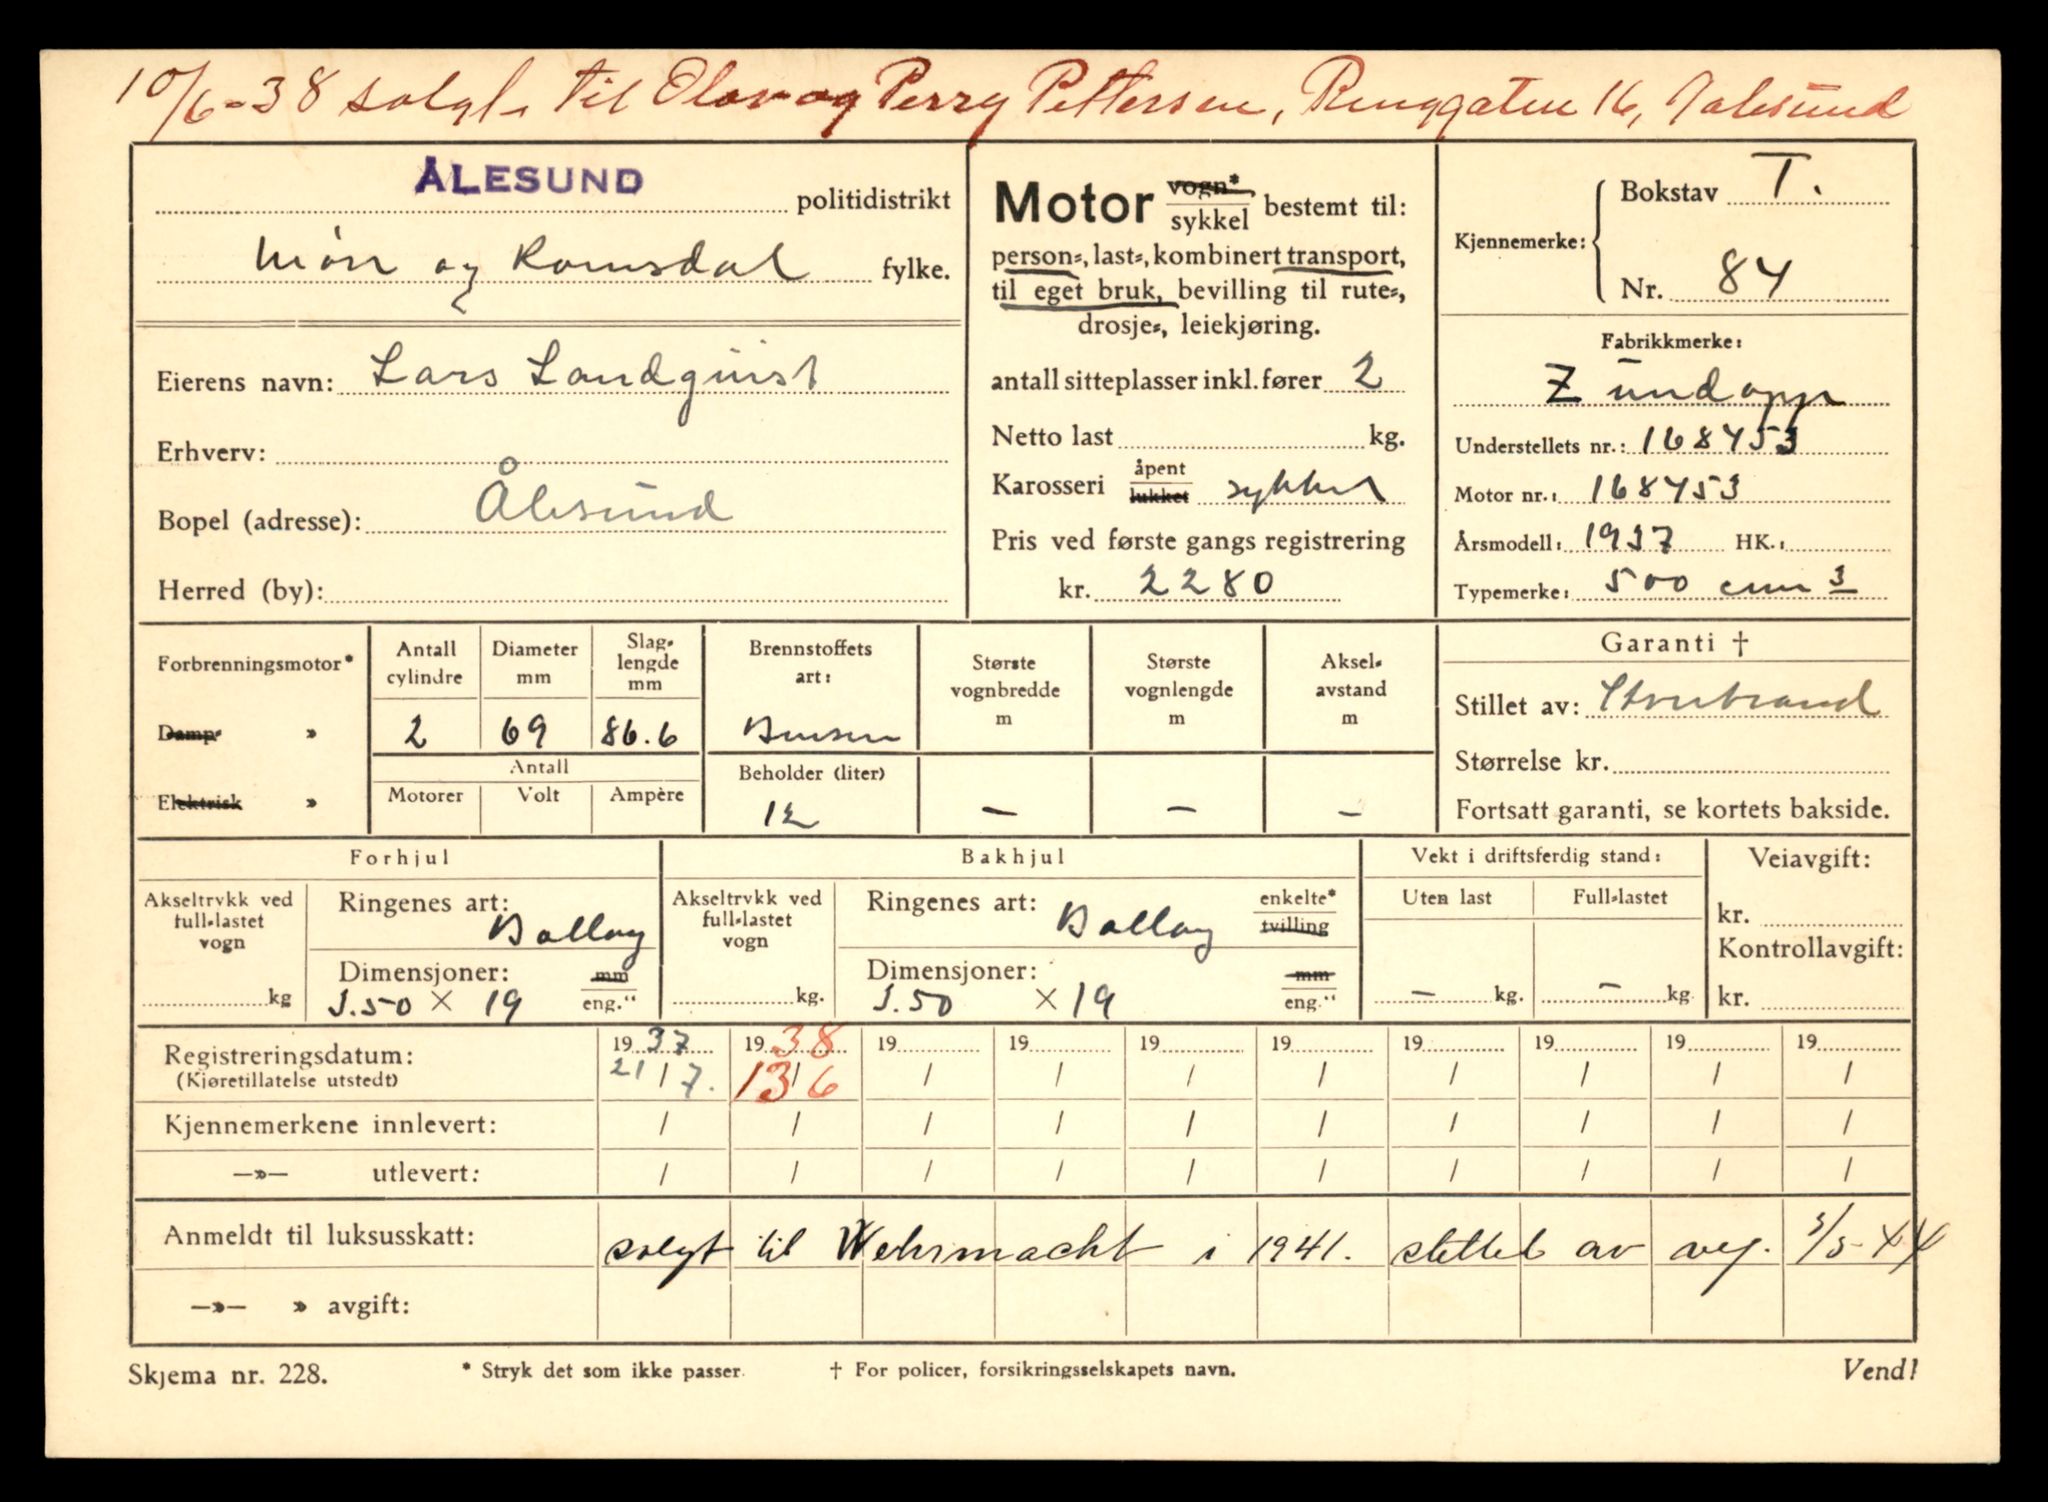 10/6-38 solgt til Olav og Perry Pettersen, Ringgaten 16, Aalesund
ÅLESUND politidistrikt
Møre og Romsdal fylke.
Eierens navn: Lars Landquist
Erhverv:
Bopel (adresse): Ålesund
Herred (by):
Motor vogn*/sykkel bestemt til:
person-, last-, kombinert transport,
til eget bruk, bevilling til rute-,
drosje-, leiekjøring.
antall sitteplasser inkl. fører 2
Netto last kg.
Karosseri åpent/lukket sykkel
Pris ved første gangs registrering
kr. 2280
Kjennemerke: Bokstav T.
Nr. 84
Fabrikkmerke:
Zündapp
Understellets nr.: 168453
Motor nr.: 168453
Årsmodell: 1937 HK.:
Typemerke: 500 cm³
Forbrenningsmotor*
Damp- »
Elektrisk »
Antall cylindre 2
Diameter mm 69
Slag-lengde mm 86.6
Antall
Motorer Volt Ampère
Brennstoffets art: Bensin
Beholder (liter) 12
Største vognbredde m –
Største vognlengde m –
Aksel-avstand m –
Garanti †
Stillet av: Storebrand
Størrelse kr.
Fortsatt garanti, se kortets bakside.
Forhjul
Akseltrykk ved full-lastet vogn kg
Ringenes art: Ballong
Dimensjoner: mm/eng."
3.50 × 19
Bakhjul
Akseltrykk ved full-lastet vogn kg.
Ringenes art: Ballong enkelte*/tvilling
Dimensjoner: mm/eng."
3.50 × 19
Vekt i driftsferdig stand:
Uten last Full-lastet
– kg. – kg.
Veiavgift:
kr.
Kontrollavgift:
kr.
Registreringsdatum: 1937 1938 19 19 19 19 19 19 19 19
(Kjøretillatelse utstedt) 21/7. 13/6 / / / / / / / /
Kjennemerkene innlevert: / / / / / / / / / /
—»— utlevert: / / / / / / / / / /
Anmeldt til luksusskatt: solgt til Wehrmacht i 1941. slettet av reg. 3/5-44
—»— » avgift:
Skjema nr. 228. * Stryk det som ikke passer. † For policer, forsikringsselskapets navn. Vend!